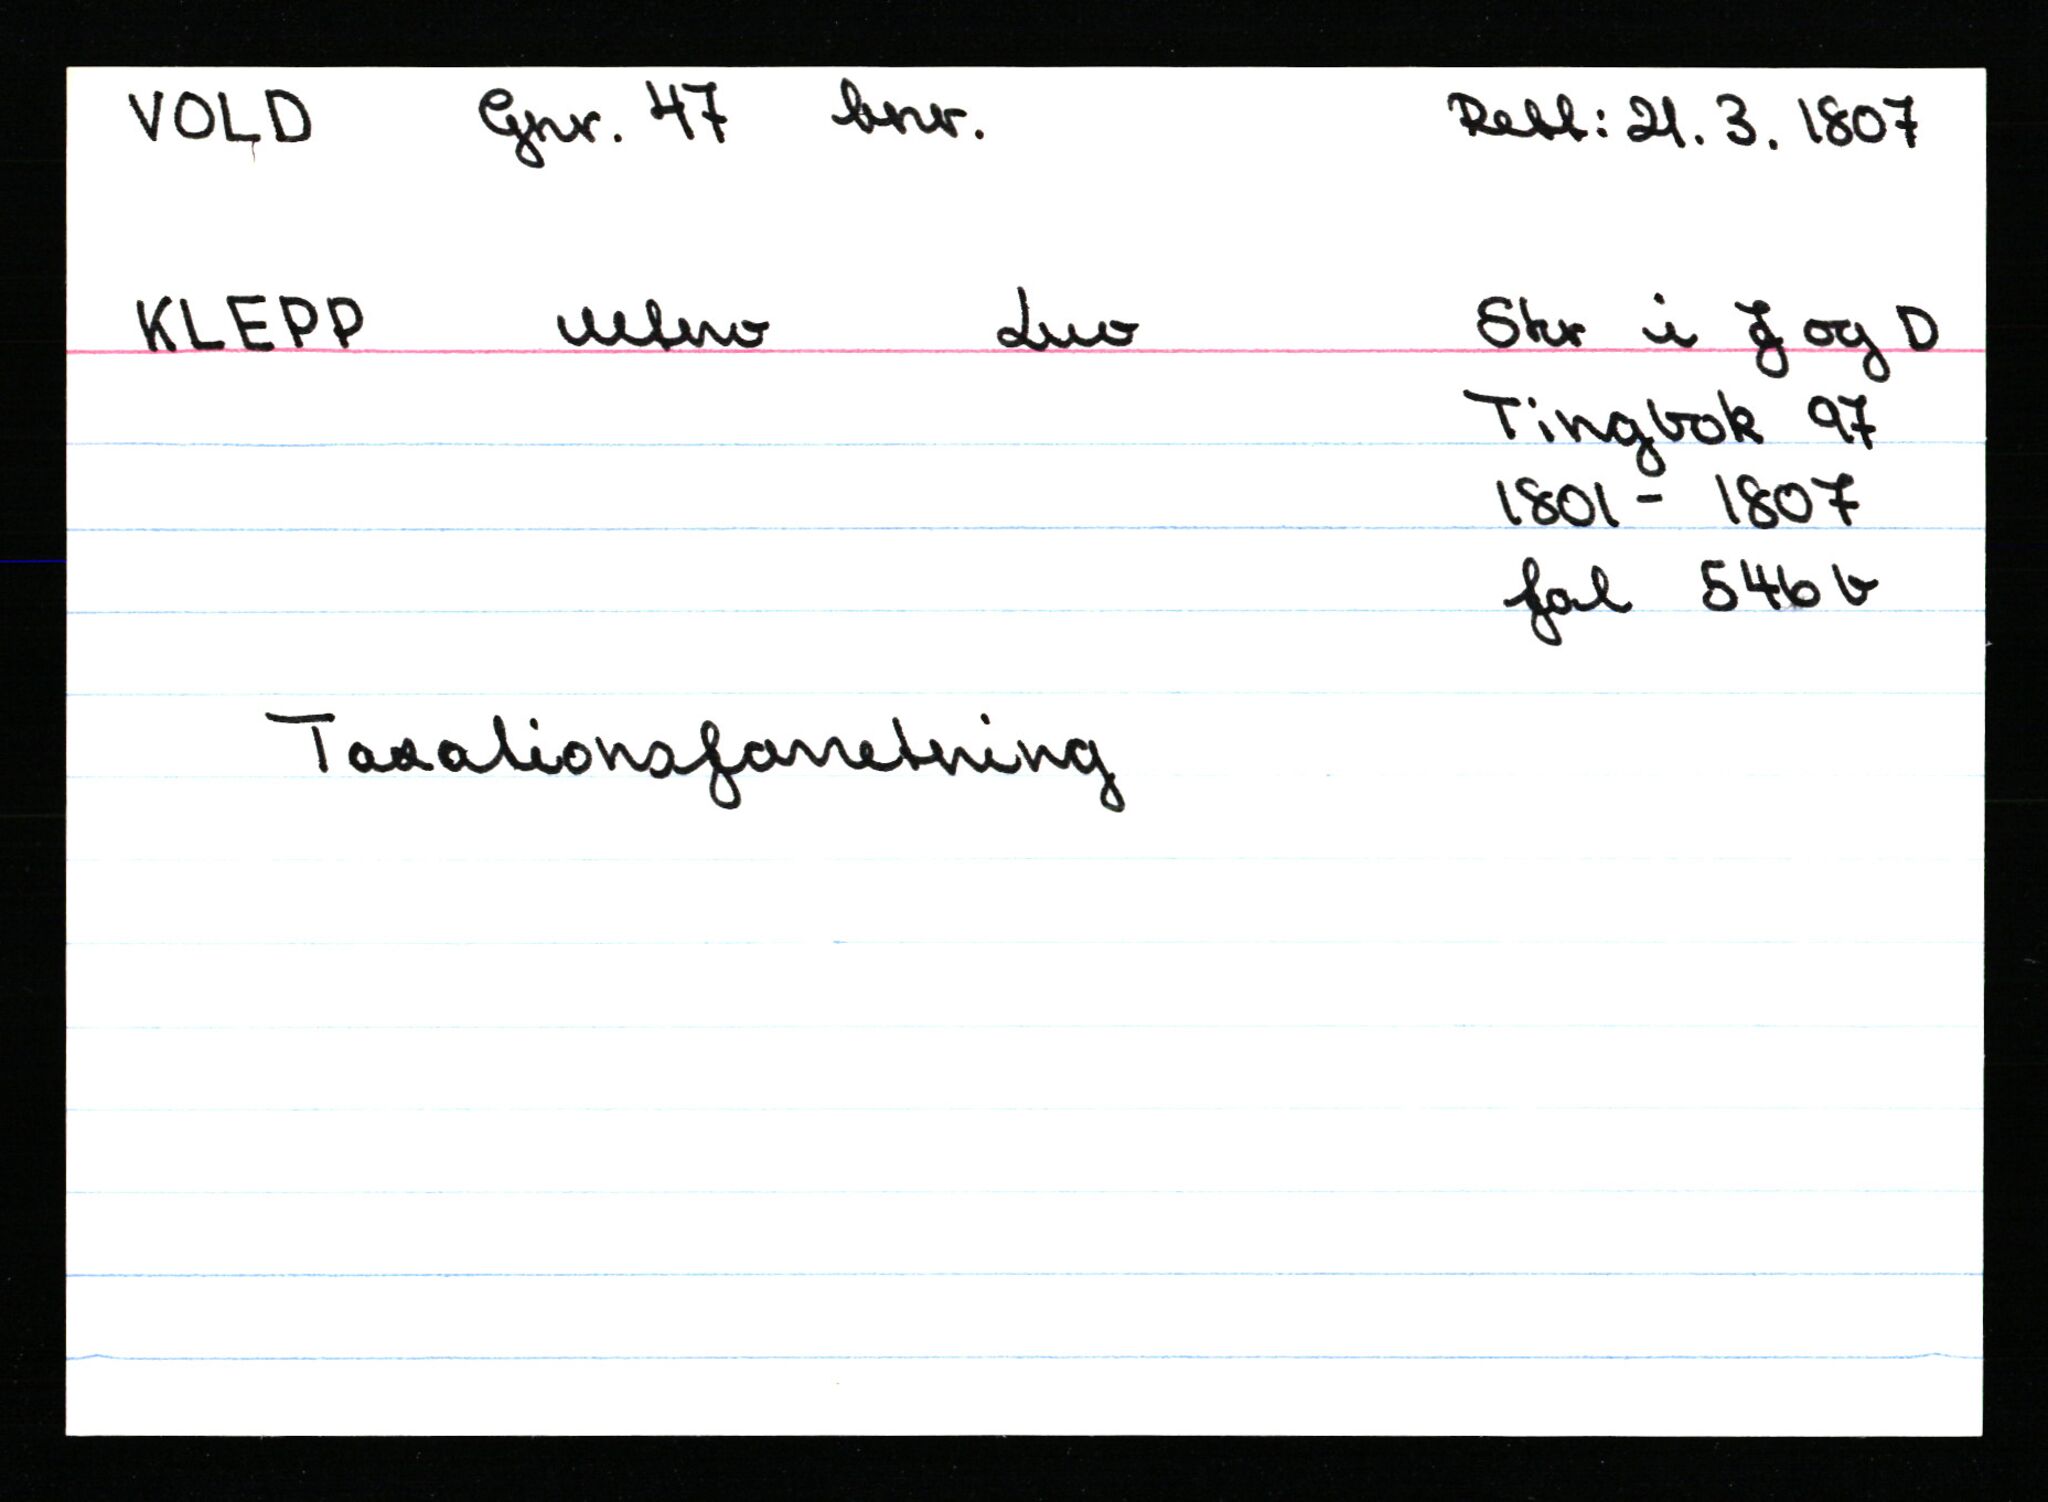 VOLD Gnr. 47 bnr. Rett: 21. 3. 1807
KLEPP Mtno Lno Skr i J og D
Tingbok 97
1801 - 1807
fol 546 b
Taxationsforretning